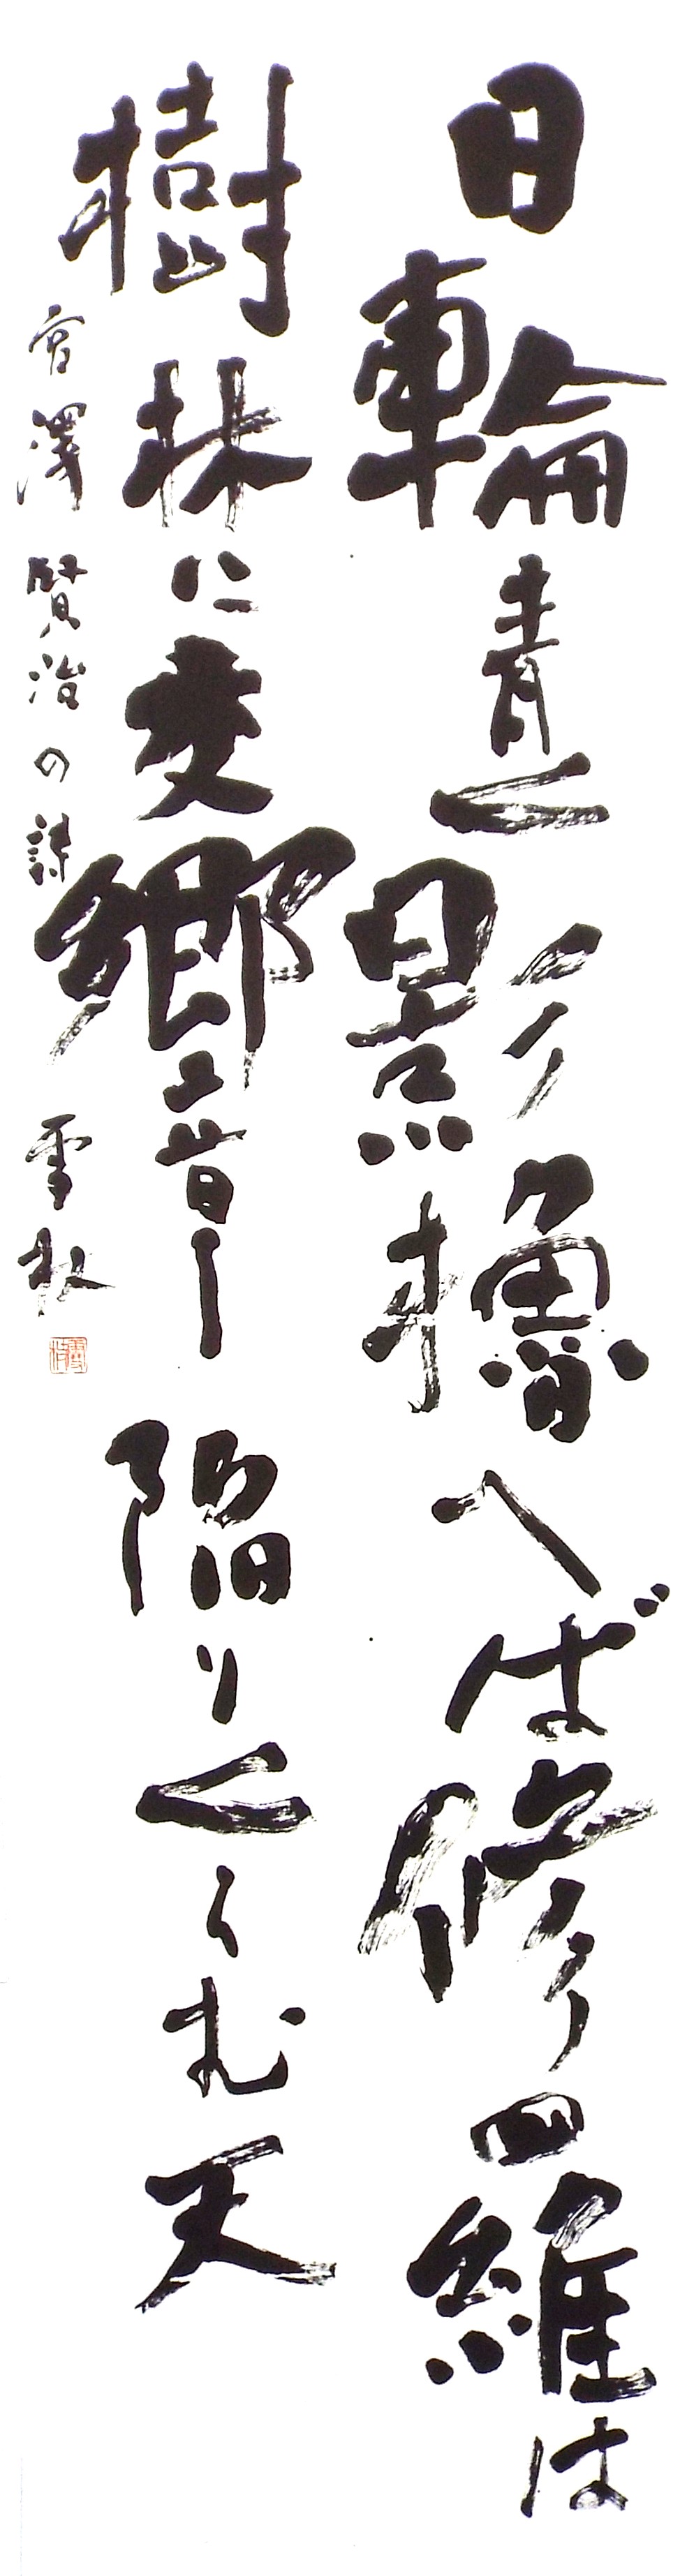 日輪青く影櫓へば修羅は
樹林に交響し陥りくらむ天
宮澤賢治の詩 雪